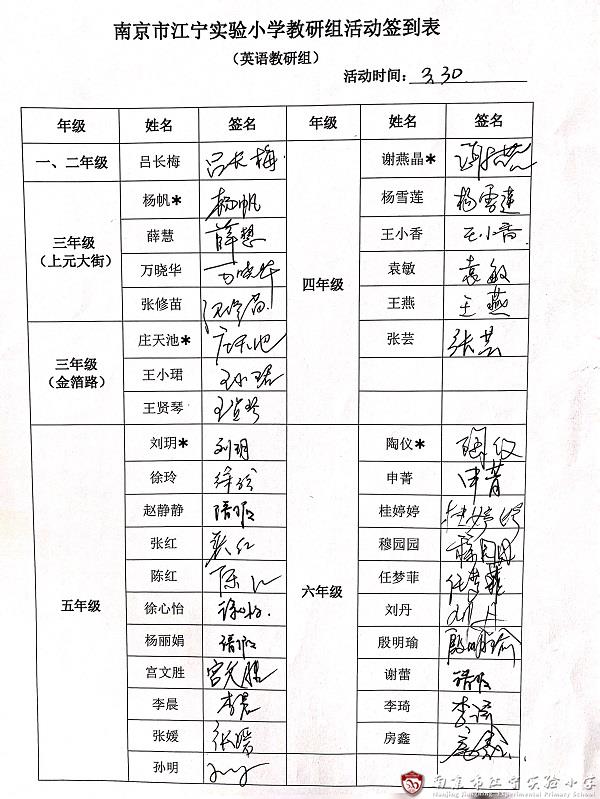 南京市江宁实验小学教研组活动签到表
（英语教研组）
活动时间：3.30
年级 姓名 签名 年级 姓名 签名
一、二年级 吕长梅 吕长梅 四年级 谢燕晶* 谢燕晶
三年级（上元大街） 杨帆* 杨帆 杨雪莲 杨雪莲
薛慧 薛慧 王小香 王小香
万晓华 万晓华 袁敏 袁敏
张修苗 张修苗 王燕 王燕
三年级（金箔路） 庄天池* 庄天池 张芸 张芸
王小珺 王小珺
王贤琴 王贤琴
五年级 刘玥* 刘玥 六年级 陶仪* 陶仪
徐玲 徐玲 申菁 申菁
赵静静 请假 桂婷婷 桂婷婷
张红 张红 穆园园 穆园园
陈红 陈红 任梦菲 任梦菲
徐心怡 徐心怡 刘丹 刘丹
杨丽娟 请假 殷明瑜 殷明瑜
宫文胜 宫文胜 谢蕾 请假
李晨 李晨 李琦 李琦
张媛 张媛 房鑫 房鑫
孙明
南京市江宁实验小学
Nanjing Jiangning Experimental Primary School